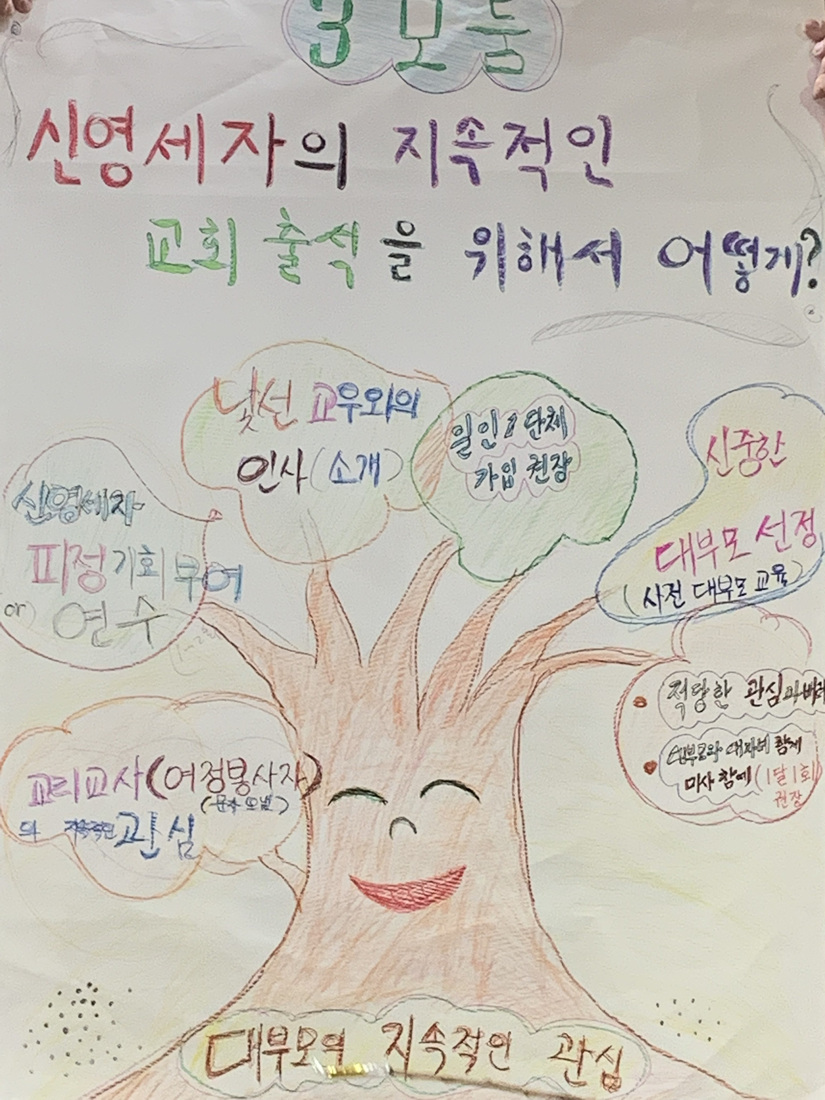 3 모둠
신영세자의 지속적인
교회 출석을 위해서 어떻게?
낯선 교우와의
인사 (소개)
일인 1 단체
가입 권장
신중한
대부모 선정
(사전 대부모 교육)
신영세자
피정 기회 부여
or) 연수
적당한 관심과
대부모와 대자녀 함께
미사 참례 (1달 1회)
권장
교리교사 (여정봉사자)
의 지속적인 관심
대부모의 지속적인 관심